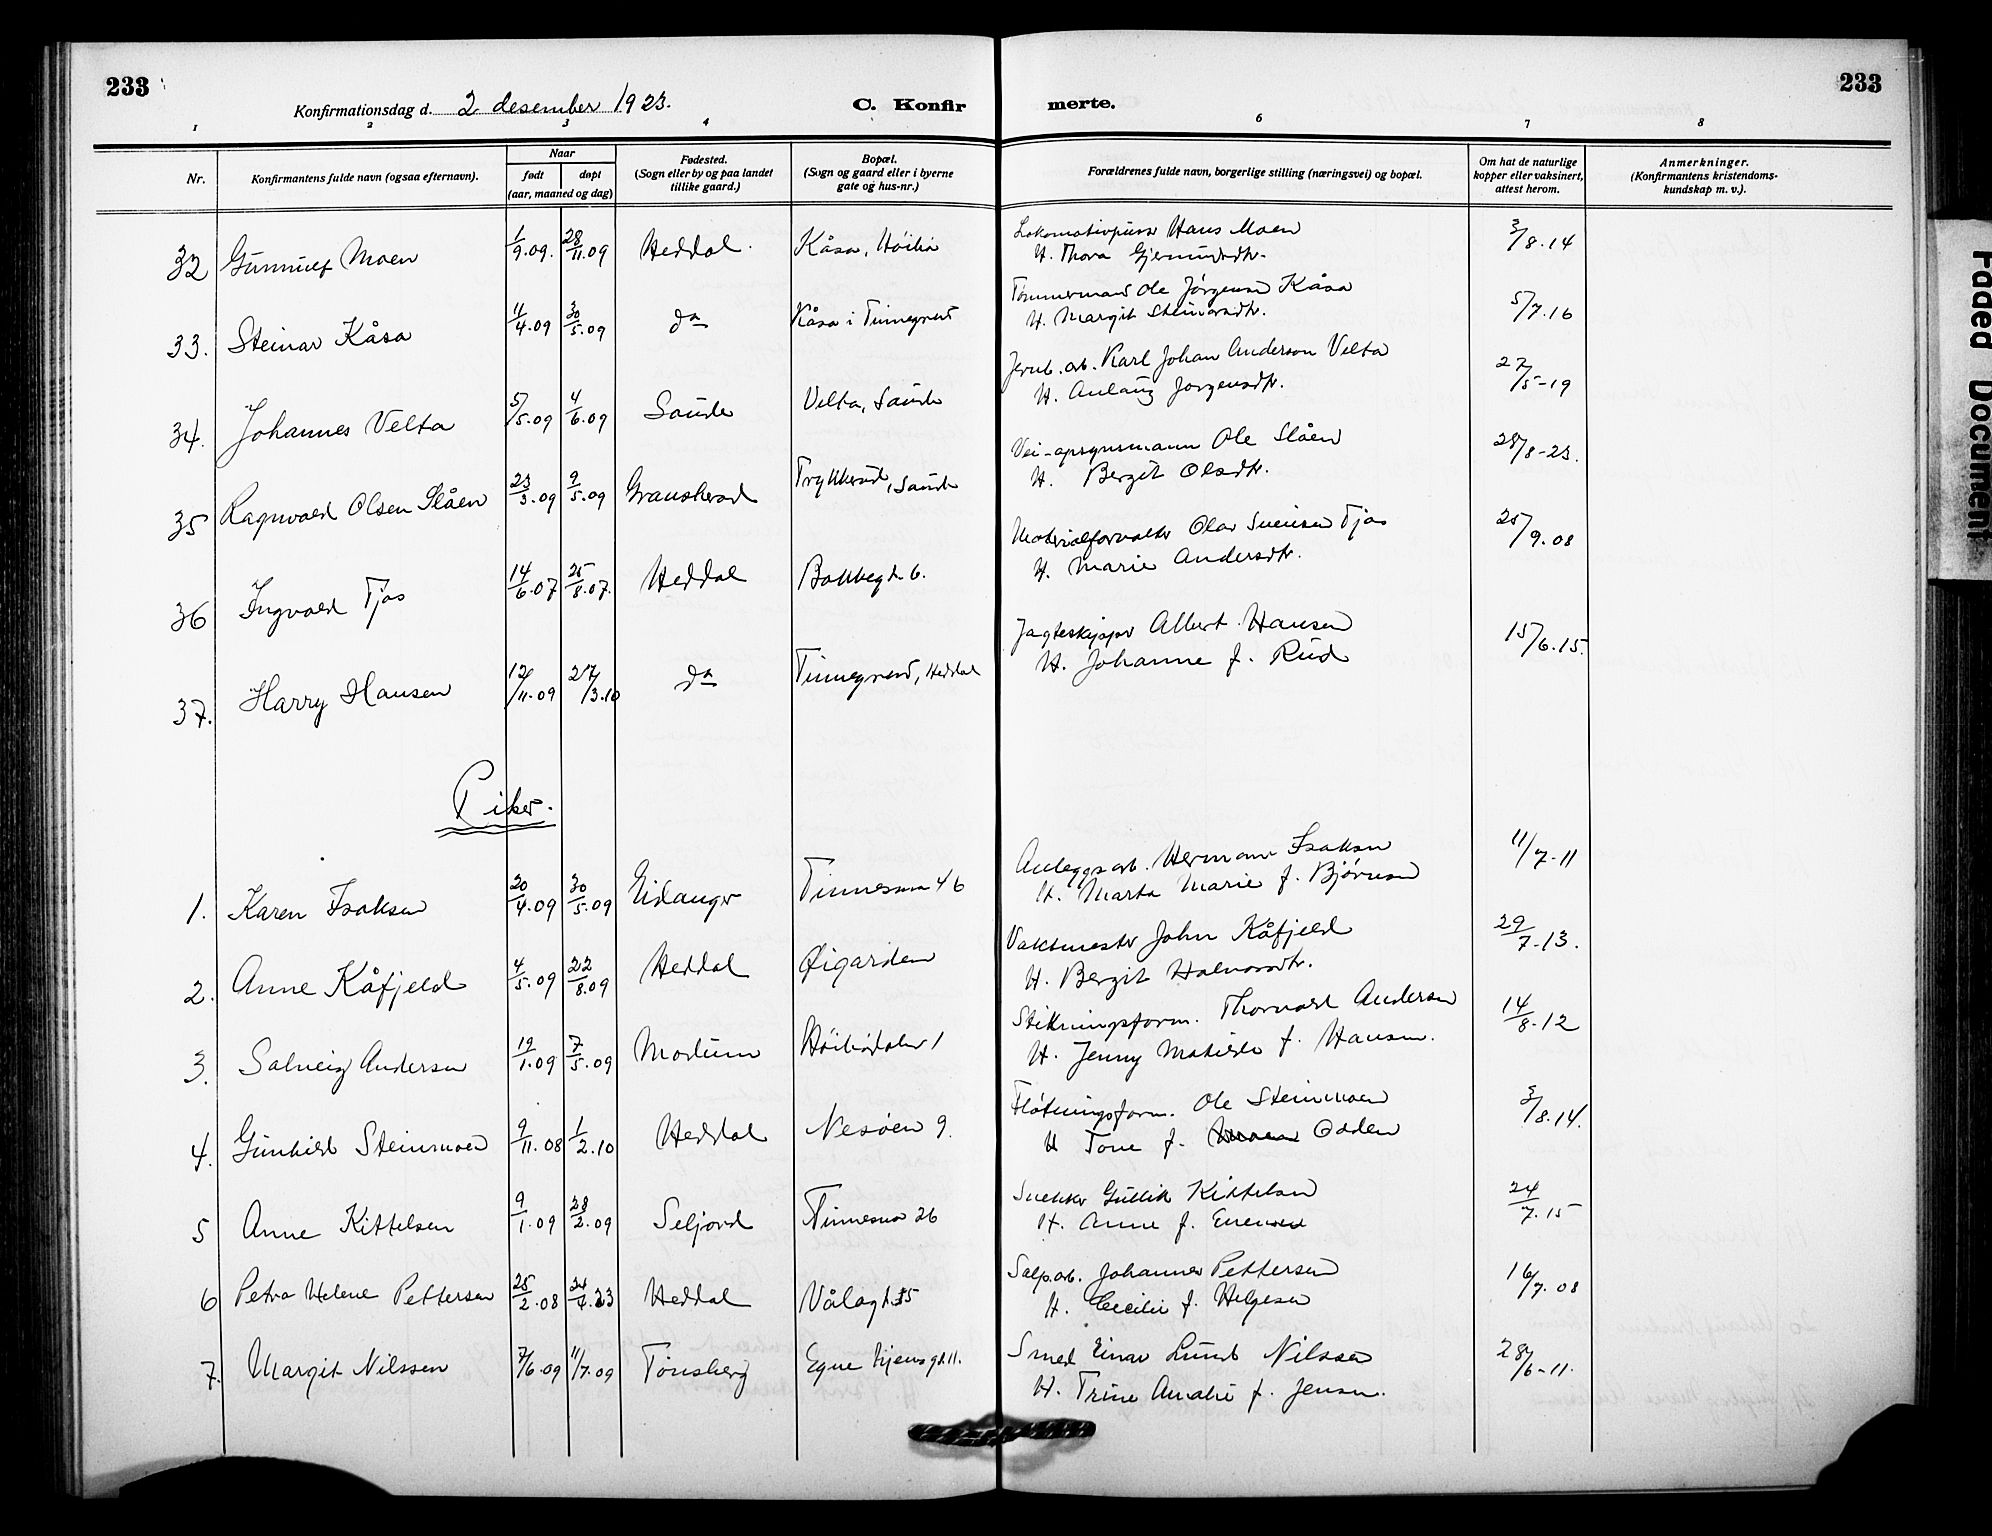 233
233
Konfirmationsdag d. 2 desember 1923.
C. Konfir merte.
1 2 3 4 6 7 8
Nr.
Konfirmantens fulde navn (ogsaa efternavn).
Naar
født døpt
(aar, maaned og dag)
Fødested.
(Sogn eller by og paa landet
tillike gaard.)
Bopæl.
(Sogn og gaard eller i byerne
gate og hus-nr.)
Forældrenes fulde navn, borgerlige stilling (næringsvei) og bopæl.
Om hat de naturlige
kopper eller vaksinert,
attest herom.
Anmerkninger.
(Konfirmantens kristendoms-
kundskap m. v.).
32 Gunnulf Moen 1/9.09. 28/11.09 Heddal. Kåsa, Hóilia Hans Moen 3/8.14
H. Thora Gjermundsdtr.
33. Steinar Kåsa 11/4.09 30/5.09 do Kåsa i Tinnegrend Tømmermand Ole Jørgensen Kåsa 5/7.16
H. Margit Steinarsdtr.
34. Johannes Velta 5/5.09 4/6.09 Saude Velta, Saude Jernb. arb. Karl Johan Anderson Velta 27/5-19
H. Aulaug Jørgensdtr.
35 Ragnvald Olsen Slåen 23/3.09 9/5.09 Gransherad Trykkerud, Saude Vei-opsynsmann Ole Slåen 28/8-23.
H. Bergit Olsdtr.
36 Ingvald Tjos 14/6.07 25/8.07. Heddal Bakkegt. 6. Materialforvalter Olav Sveinsen Tjos 25/9.08
H. Marie Andersdtr.
37. Harry Hansen 12/11.09 27/3.10 do Tinnegrend, Heddal Jagteskipper Albert Hansen 15/6.15.
H. Johanne f. Rud
Piker.
1. Karen Isaksen 20/4.09 30/5.09 Eidanger Tinnesmo 46 Anleggsarb. Herman Isaksen 11/7-11
H. Marta Marie f. Bjørnsen
2. Anne Kåfjeld 4/5.09 22/8.09 Heddal Øigarden Vaktmester John Kåfjeld 29/7-13.
H. Bergit Halvorsdtr.
3. Solveig Andersen 19/1.09 7/5.09 Modum Hóiliadalen 1 Stikningsform. Thorvald Andersen 14/8-12
H. Jenny Matilde f. Hansen.
4. Gunhild Steinmoen 9/11.08 1/2.10 Heddal Nesøen 9. Fløtningsform. Ole Steinmoen 3/8.14.
H Tone f. Odden
5 Anne Kittelsen 9/1.09 28/2.09 Seljord Tinnesmo 26 Snekker Gullik Kittelsen 24/7.15
H. Anne f. Evensen
6 Petra Helene Pettersen 25/2.08 24/4.23 Heddal Vålagt. 35 Salp.arb. Johannes Pettersen 16/7.08
H. Cecilie f. Helgesen
7. Margit Nilssen 7/6.09 11/7.09 Tønsberg gt. 11. Smed Einar Lund Nilssen 28/6-11.
H. Trine Amalie f. Jensen.
Faded Document